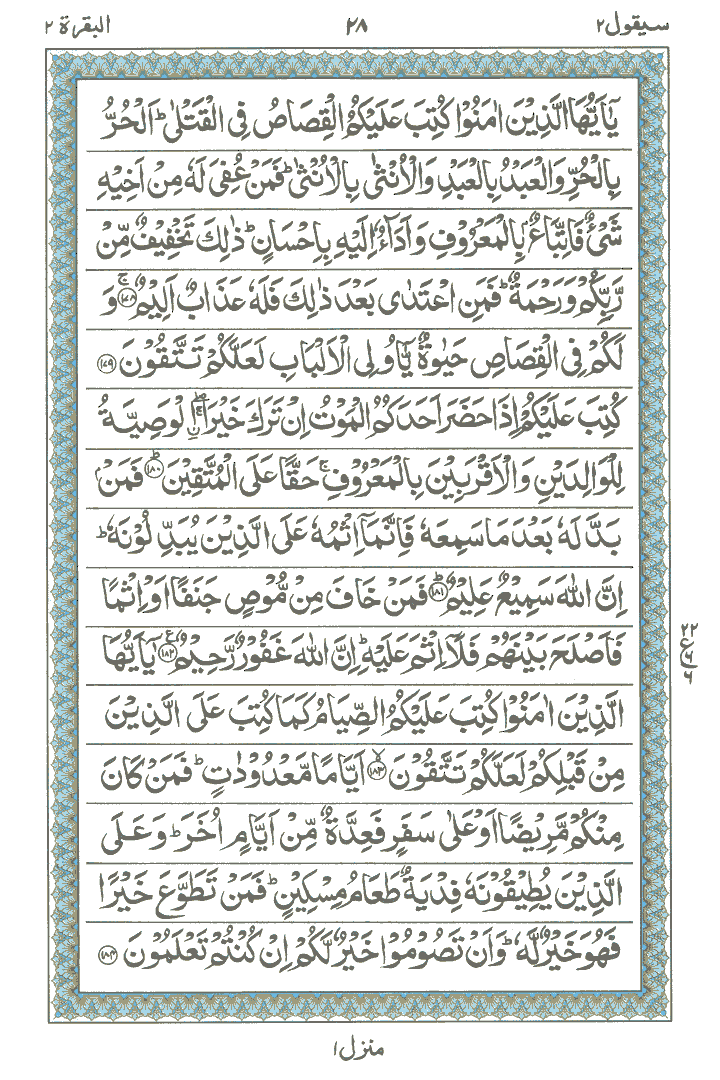 سيقول٢ ٢٨ البقرة ٢
يٰۤاَيُّهَا الَّذِيْنَ اٰمَنُوْا كُتِبَ عَلَيْكُمُ الْقِصَاصُ فِى الْقَتْلٰىؕ اَلْحُرُّ
بِالْحُرِّ وَالْعَبْدُ بِالْعَبْدِ وَالْاُنْثٰى بِالْاُنْثٰىؕ فَمَنْ عُفِىَ لَهٗ مِنْ اَخِيْهِ
شَىْءٌ فَاتِّبَاعٌۢ بِالْمَعْرُوْفِ وَاَدَآءٌ اِلَيْهِ بِاِحْسَانٍؕ ذٰلِكَ تَخْفِيْفٌ مِّنْ
رَّبِّكُمْ وَرَحْمَةٌؕ فَمَنِ اعْتَدٰى بَعْدَ ذٰلِكَ فَلَهٗ عَذَابٌ اَلِيْمٌۚ ﴿۱۷۸﴾ وَ
لَكُمْ فِى الْقِصَاصِ حَيٰوةٌ يّٰۤاُولِى الْاَلْبَابِ لَعَلَّكُمْ تَتَّقُوْنَ ﴿۱۷۹﴾
كُتِبَ عَلَيْكُمْ اِذَا حَضَرَ اَحَدَكُمُ الْمَوْتُ اِنْ تَرَكَ خَيْرَا ۖۚ اۨلْوَصِيَّةُ
لِلْوَالِدَيْنِ وَالْاَقْرَبِيْنَ بِالْمَعْرُوْفِۚ حَقًّا عَلَى الْمُتَّقِيْنَؕ ﴿۱۸۰﴾ فَمَنْۢ
بَدَّلَهٗ بَعْدَ مَا سَمِعَهٗ فَاِنَّمَاۤ اِثْمُهٗ عَلَى الَّذِيْنَ يُبَدِّلُوْنَهٗؕ
اِنَّ اللّٰهَ سَمِيْعٌ عَلِيْمٌؕ ﴿۱۸۱﴾ فَمَنْ خَافَ مِنْ مُّوْصٍ جَنَفًا اَوْ اِثْمًا
فَاَصْلَحَ بَيْنَهُمْ فَلَاۤ اِثْمَ عَلَيْهِؕ اِنَّ اللّٰهَ غَفُوْرٌ رَّحِيْمٌ ﴿۱۸۲﴾ ع يٰۤاَيُّهَا
٢٢
ع
٦
٦
الَّذِيْنَ اٰمَنُوْا كُتِبَ عَلَيْكُمُ الصِّيَامُ كَمَا كُتِبَ عَلَى الَّذِيْنَ
مِنْ قَبْلِكُمْ لَعَلَّكُمْ تَتَّقُوْنَۙ ﴿۱۸۳﴾ اَيَّامًا مَّعْدُوْدٰتٍؕ فَمَنْ كَانَ
مِنْكُمْ مَّرِيْضًا اَوْ عَلٰى سَفَرٍ فَعِدَّةٌ مِّنْ اَيَّامٍ اُخَرَؕ وَعَلَى
الَّذِيْنَ يُطِيْقُوْنَهٗ فِدْيَةٌ طَعَامُ مِسْكِيْنٍؕ فَمَنْ تَطَوَّعَ خَيْرًا
فَهُوَ خَيْرٌ لَّهٗؕ وَاَنْ تَصُوْمُوْا خَيْرٌ لَّكُمْ اِنْ كُنْتُمْ تَعْلَمُوْنَ ﴿۱۸۴﴾
منزل١